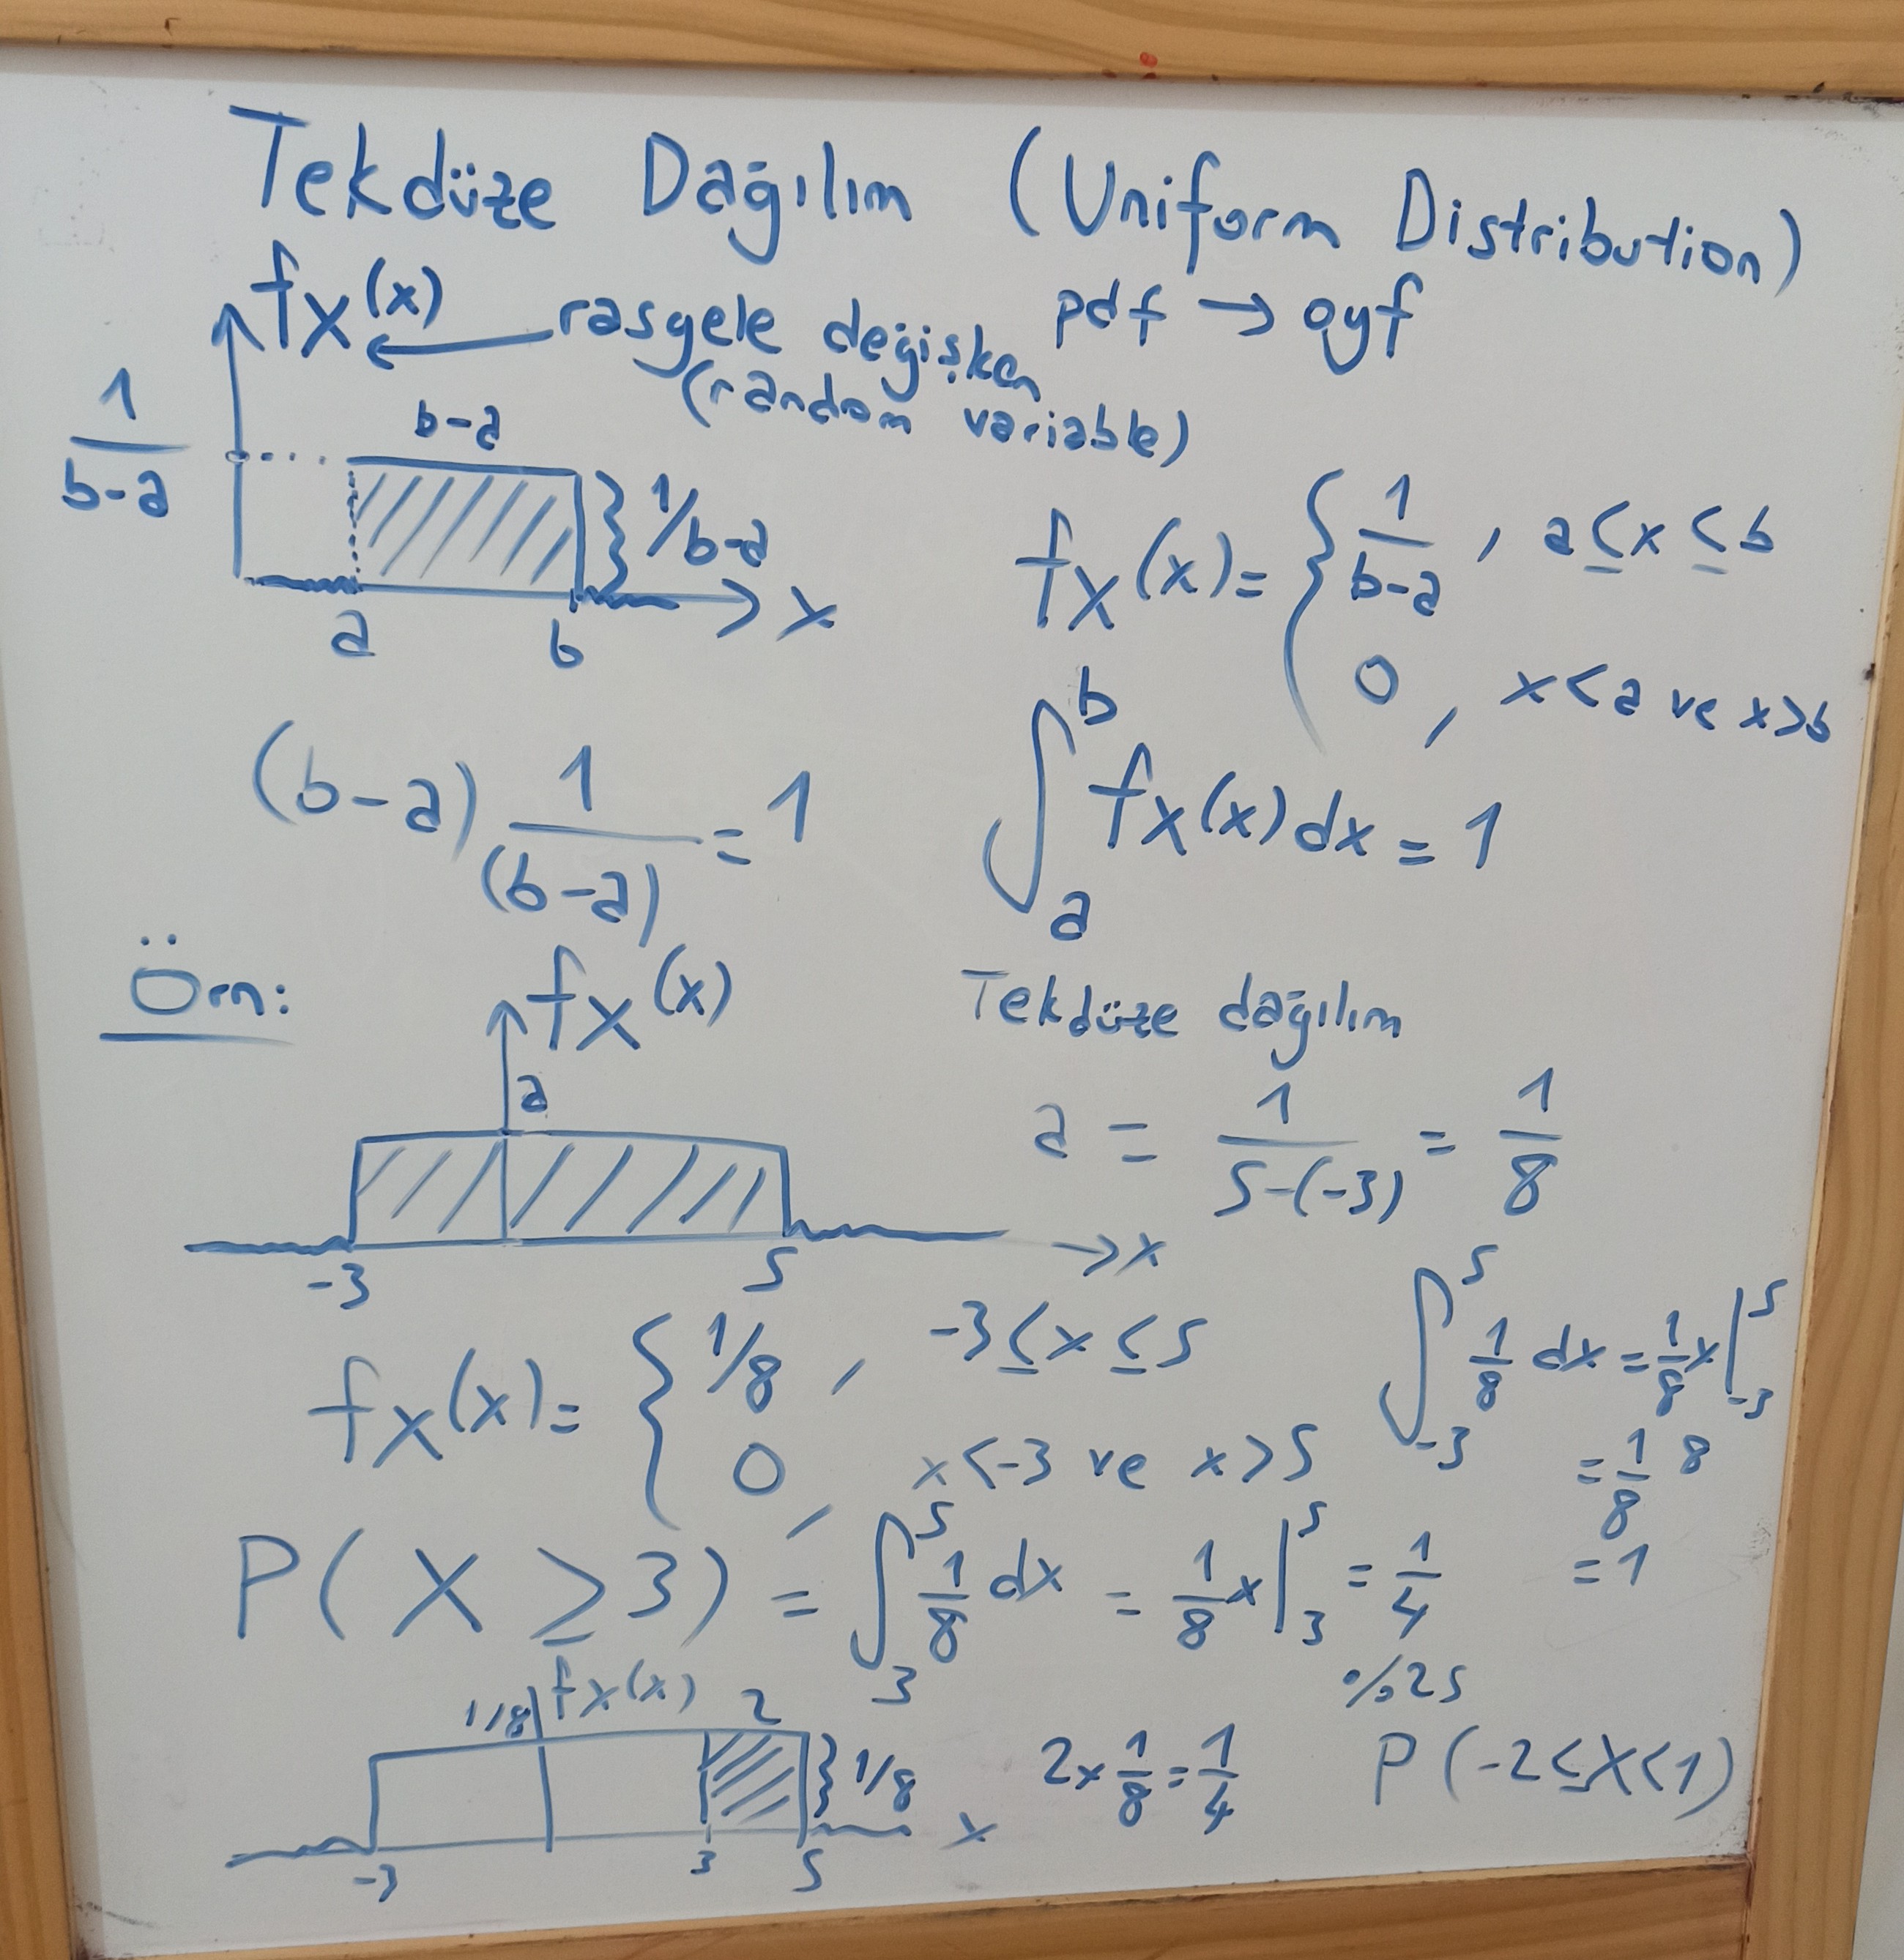 Tekdüze Dağılım (Uniform Distribution)
fx(x) ← rasgele değişken pdf → oyf
(random variable)
1/(b-a) b-a 1/b-a
a b x
fx(x) = { 1/(b-a) , a ≤ x ≤ b
0 , x < a ve x > b
(b-a) 1/(b-a) = 1
∫_a^b fx(x) dx = 1
Örn: fx(x) Tekdüze dağılım
a
a = 1/(5-(-3)) = 1/8
-3 5 → x
fx(x) = { 1/8 , -3 ≤ x ≤ 5
0 , x < -3 ve x > 5
∫_-3^5 1/8 dx = 1/8 x |_-3^5
= 1/8 8
= 1
P(X ≥ 3) = ∫_3^5 1/8 dx = 1/8 x |_3^5 = 1/4
%25
1/8 fx(x) 2
1/8 x
-3 3 5
2 x 1/8 = 1/4
P(-2 ≤ X < 1)